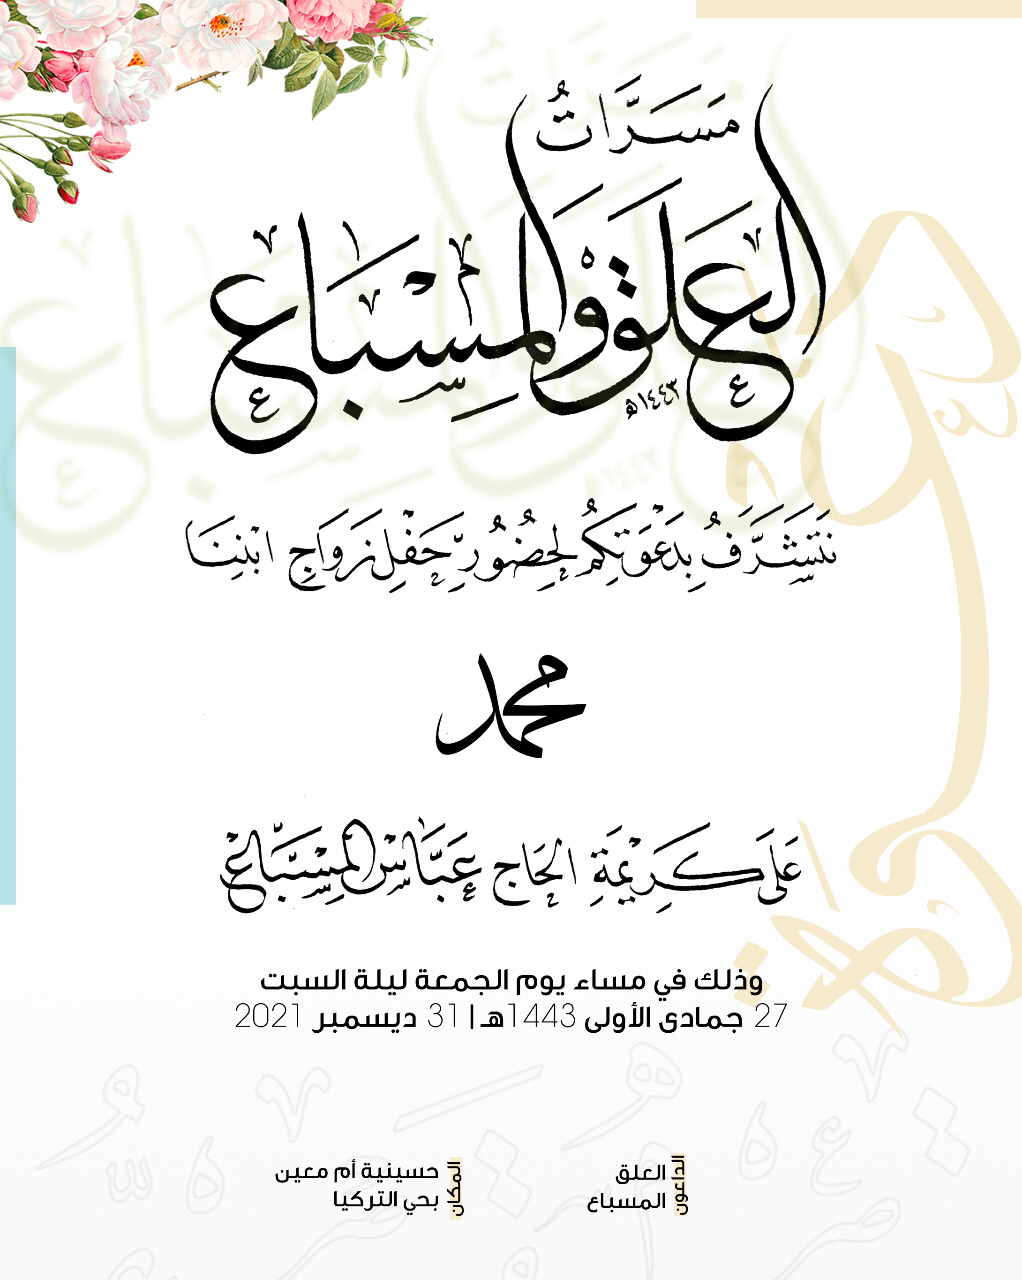 مَسَرَّاتُ
العلق والمسباع
١٤٤٣هـ
نَتَشَرَّفُ بِدَعْوَتِكُمْ لِحُضُورِ حَفْلِ زَوَاجِ ابْنِنَا
محمد
عَلَى كَرِيْمَةِ الحَاج عَبَّاس المِسْبَّاع
وذلك في مساء يوم الجمعة ليلة السبت
27 جمادى الأولى 1443هـ | 31 ديسمبر 2021
الداعون
العلق
المسباع
المكان
حسينية أم معين
بحي التركيا